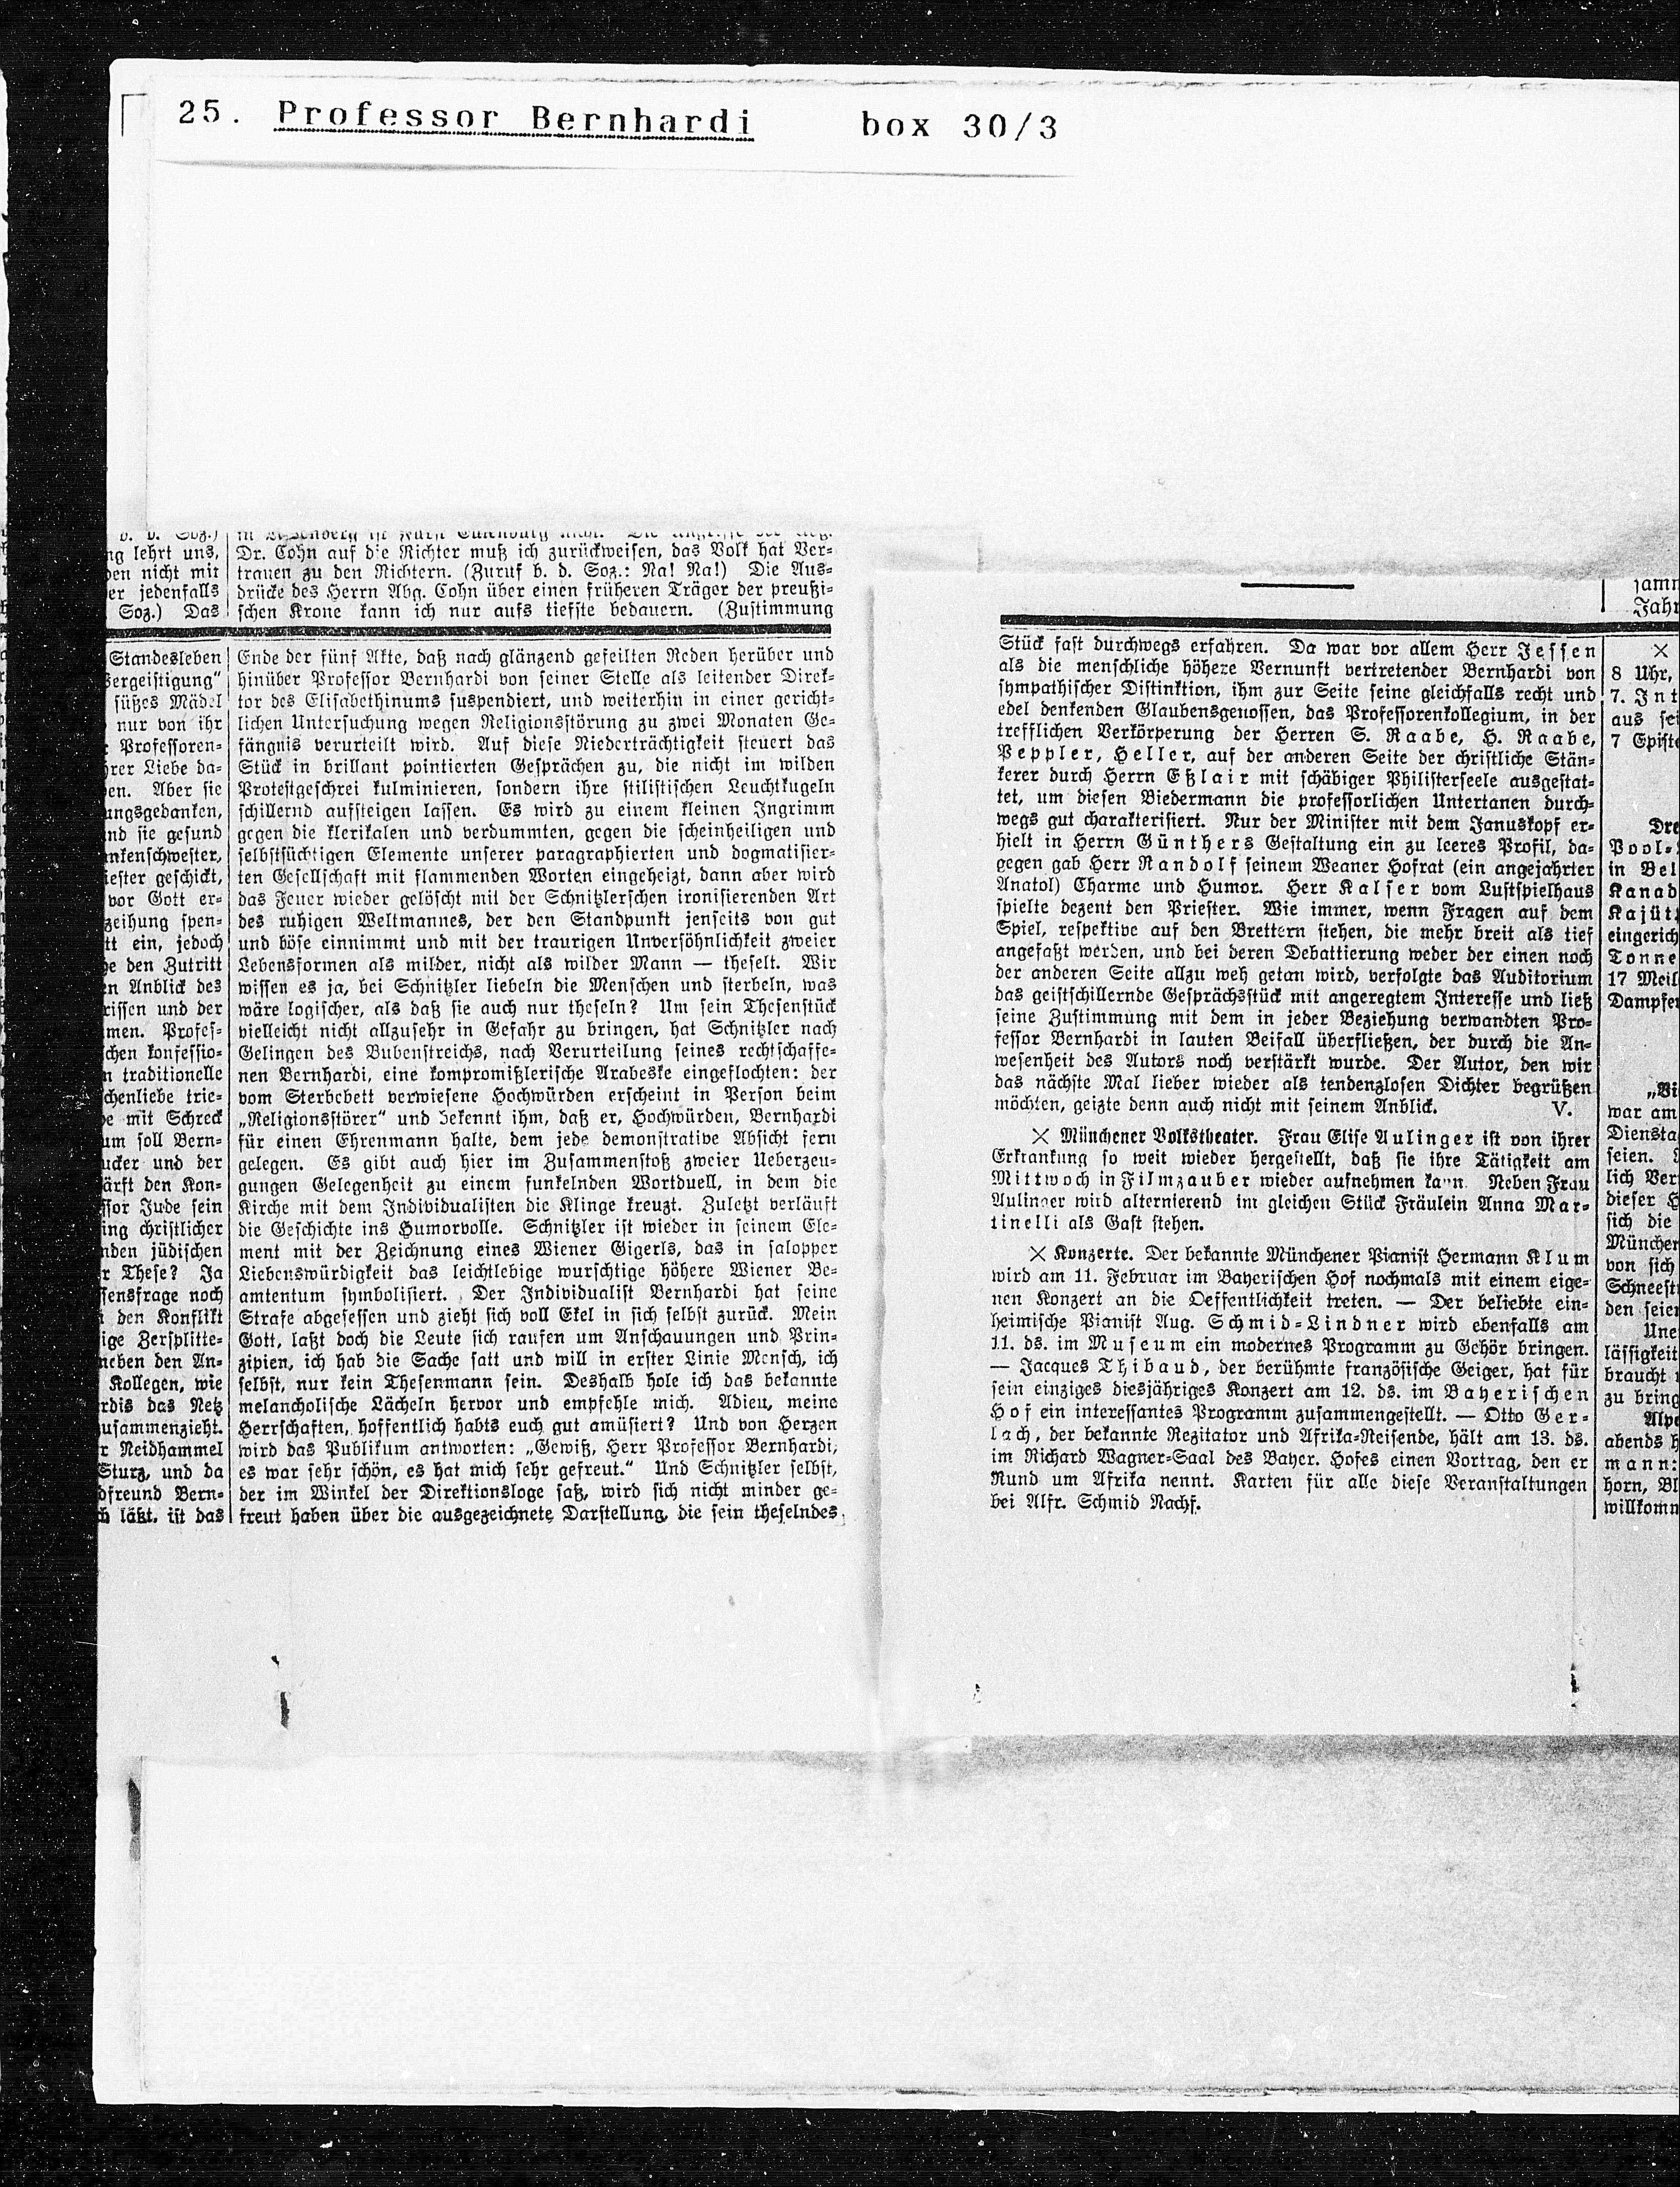 25. Professor Bernhardi box 30/3
b. d. Soz.)
ng lehrt uns,
den nicht mit
er jedenfalls
Soz.) Das
Standesleben
Vergeistigung“
süßes Mädel
nur von ihr
Professoren-
hrer Liebe da-
en. Aber sie
ungsgedanken,
nd sie gesund
nkenschwester,
iester geschickt,
vor Gott er-
zeihung spen-
tt ein, jedoch
e den Zutritt
n Anblick des
rissen und der
men. Profes-
chen konfessio-
n traditionelle
chenliebe trie-
e mit Schreck
um soll Bern-
ucker und der
ärft den Kon-
ssor Jude sein
ing christlicher
nden jüdischen
r These? Ja
sensfrage noch
den Konflikt
ige Zersplitte-
neben den An-
Kollegen, wie
rdis das Netz
zusammenzieht.
r Neidhammel
Sturz, und da
dfreund Bern-
h läßt, ist das
Dr. Cohn auf die Richter muß ich zurückweisen, das Volk hat Ver-
trauen zu den Richtern. (Zuruf b. d. Soz.: Na! Na!) Die Aus-
drücke des Herrn Abg. Cohn über einen früheren Träger der preußi-
schen Krone kann ich nur aufs tiefste bedauern. (Zustimmung
Ende der fünf Akte, daß nach glänzend gefeilten Reden herüber und
hinüber Professor Bernhardi von seiner Stelle als leitender Direk-
tor des Elisabethinums suspendiert, und weiterhin in einer gericht-
lichen Untersuchung wegen Religionsstörung zu zwei Monaten Ge-
fängnis verurteilt wird. Auf diese Niederträchtigkeit steuert das
Stück in brillant pointierten Gesprächen zu, die nicht im wilden
Protestgeschrei kulminieren, sondern ihre stilistischen Leuchtkugeln
schillernd aufsteigen lassen. Es wird zu einem kleinen Ingrimm
gegen die klerikalen und verdummten, gegen die scheinheiligen und
selbstsüchtigen Elemente unserer paragraphierten und dogmatisier-
ten Gesellschaft mit flammenden Worten eingeheizt, dann aber wird
das Feuer wieder gelöscht mit der Schnitzlerschen ironisierenden Art
des ruhigen Weltmannes, der den Standpunkt jenseits von gut
und böse einnimmt und mit der traurigen Unversöhnlichkeit zweier
Lebensformen als milder, nicht als wilder Mann — theselt. Wir
wissen es ja, bei Schnitzler liebeln die Menschen und sterbeln, was
wäre logischer, als daß sie auch nur theseln? Um sein Thesenstück
vielleicht nicht allzusehr in Gefahr zu bringen, hat Schnitzler nach
Gelingen des Bubenstreichs, nach Verurteilung seines rechtschaffe-
nen Bernhardi, eine kompromißlerische Arabeske eingeflochten: der
vom Sterbebett verwiesene Hochwürden erscheint in Person beim
„Religionsstörer“ und bekennt ihm, daß er, Hochwürden, Bernhardi
für einen Ehrenmann halte, dem jede demonstrative Absicht fern
gelegen. Es gibt auch hier im Zusammenstoß zweier Ueberzeu-
gungen Gelegenheit zu einem funkelnden Wortduell, in dem die
Kirche mit dem Individualisten die Klinge kreuzt. Zuletzt verläuft
die Geschichte ins Humorvolle. Schnitzler ist wieder in seinem Ele-
ment mit der Zeichnung eines Wiener Gigerls, das in salopper
Liebenswürdigkeit das leichtlebige wurschtige höhere Wiener Be-
amtentum symbolisiert. Der Individualist Bernhardi hat seine
Strafe abgesessen und zieht sich voll Ekel in sich selbst zurück. Mein
Gott, laßt doch die Leute sich raufen um Anschauungen und Prin-
zipien, ich hab die Sache satt und will in erster Linie Mensch, ich
selbst, nur kein Thesenmann sein. Deshalb hole ich das bekannte
melancholische Lächeln hervor und empfehle mich. Adieu, meine
Herrschaften, hoffentlich habts euch gut amüsiert? Und von Herzen
wird das Publikum antworten: „Gewiß, Herr Professor Bernhardi,
es war sehr schön, es hat mich sehr gefreut.“ Und Schnitzler selbst,
der im Winkel der Direktionsloge saß, wird sich nicht minder ge-
freut haben über die ausgezeichnete Darstellung, die sein theselndes
Stück fast durchwegs erfahren. Da war vor allem Herr Jessen
als die menschliche höhere Vernunft vertretender Bernhardi von
sympathischer Distinktion, ihm zur Seite seine gleichfalls recht und
edel denkenden Glaubensgenossen, das Professorenkollegium, in der
trefflichen Verkörperung der Herren S. Raabe, H. Raabe,
Peppler, Heller, auf der anderen Seite der christliche Stän-
kerer durch Herrn Eßlair mit schäbiger Philisterseele ausgestat-
tet, um diesen Biedermann die professorlichen Untertanen durch-
wegs gut charakterisiert. Nur der Minister mit dem Januskopf er-
hielt in Herrn Günthers Gestaltung ein zu leeres Profil, da-
gegen gab Herr Randolf seinem Weaner Hofrat (ein angejahrter
Anatol) Charme und Humor. Herr Kalser vom Lustspielhaus
spielte dezent den Priester. Wie immer, wenn Fragen auf dem
Spiel, respektive auf den Brettern stehen, die mehr breit als tief
angefaßt werden, und bei deren Debattierung weder der einen noch
der anderen Seite allzu weh getan wird, verfolgte das Auditorium
das geistschillernde Gesprächsstück mit angeregtem Interesse und ließ
seine Zustimmung mit dem in jeder Beziehung verwandten Pro-
fessor Bernhardi in lauten Beifall überfließen, der durch die An-
wesenheit des Autors noch verstärkt wurde. Der Autor, den wir
das nächste Mal lieber wieder als tendenzlosen Dichter begrüßen
möchten, geizte denn auch nicht mit seinem Anblick. V.
× Münchener Volkstheater. Frau Elise Aulinger ist von ihrer
Erkrankung so weit wieder hergestellt, daß sie ihre Tätigkeit am
Mittwoch in Filmzauber wieder aufnehmen kann. Neben Frau
Aulinger wird alternierend im gleichen Stück Fräulein Anna Mar-
tinelli als Gast stehen.
× Konzerte. Der bekannte Münchener Pianist Hermann Klum
wird am 11. Februar im Bayerischen Hof nochmals mit einem eige-
nen Konzert an die Oeffentlichkeit treten. — Der beliebte ein-
heimische Pianist Aug. Schmid-Lindner wird ebenfalls am
11. ds. im Museum ein modernes Programm zu Gehör bringen.
— Jacques Thibaud, der berühmte französische Geiger, hat für
sein einziges diesjähriges Konzert am 12. ds. im Bayerischen
Hof ein interessantes Programm zusammengestellt. — Otto Ger-
lach, der bekannte Rezitator und Afrika-Reisende, hält am 13. ds.
im Richard Wagner-Saal des Bayer. Hofes einen Vortrag, den er
Rund um Afrika nennt. Karten für alle diese Veranstaltungen
bei Alfr. Schmid Nachf.
samm
Jahr
×
8 Uhr,
7. Int
aus sei
7 Episte
Dre
Pool-
in Bel
Kanad
Kajüt
eingerich
Tonne
17 Meil
Dampfer
„Bi
war am
Diensta
seien.
lich Ver
dieser
sich die
München
von sich
Schneest
den seien
Une
lässigkeit
braucht
zu bring
Alpe
abends
mann:
horn, Bl
willkomm